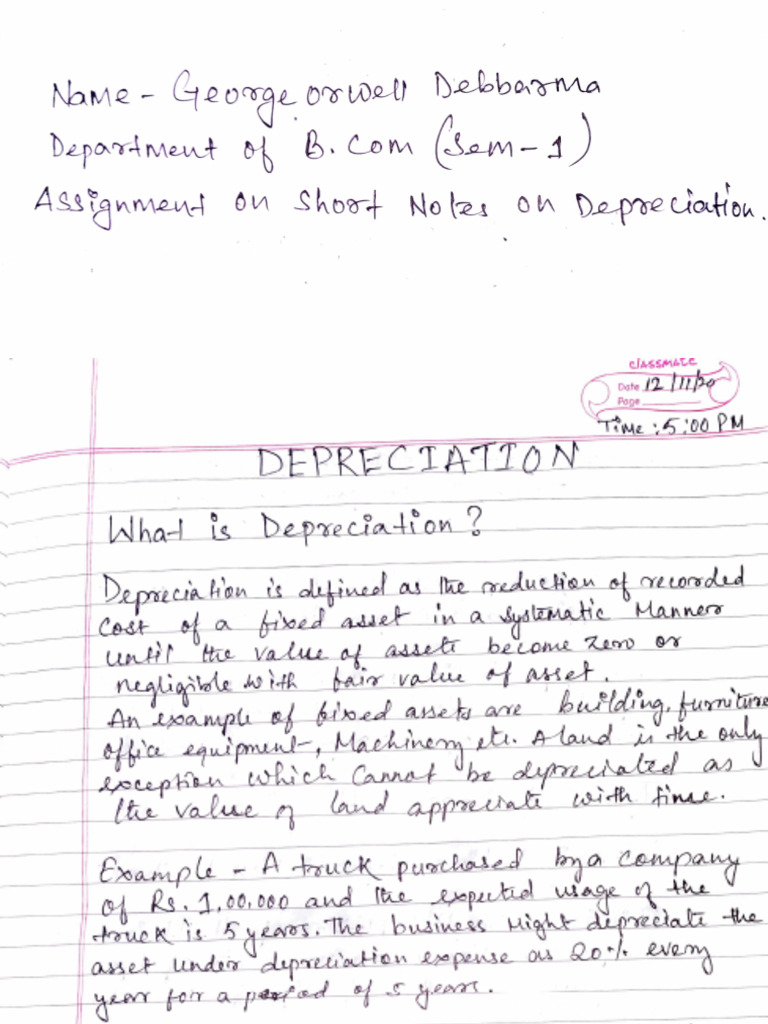 Name - George orwell Debbarma
Department of B.Com (Sem-1)
Assignment on Short Notes on Depreciation.
classmate
Date 12/11/20
Page
Time : 5:00 PM
DEPRECIATION
What is Depreciation?
Depreciation is defined as the reduction of recorded
cost of a fixed asset in a systematic Manner
until the value of assets become zero or
negligible with fair value of asset.
An example of fixed assets are building, furniture
office equipment, Machinery etc. A land is the only
exception which cannot be depreciated as
the value of land appreciate with time.
Example - A truck purchased by a company
of Rs. 1,00,000 and the expected usage of the
truck is 5 years. The business might depreciate the
asset under depreciation expense as 20% every
year for a period of 5 years.